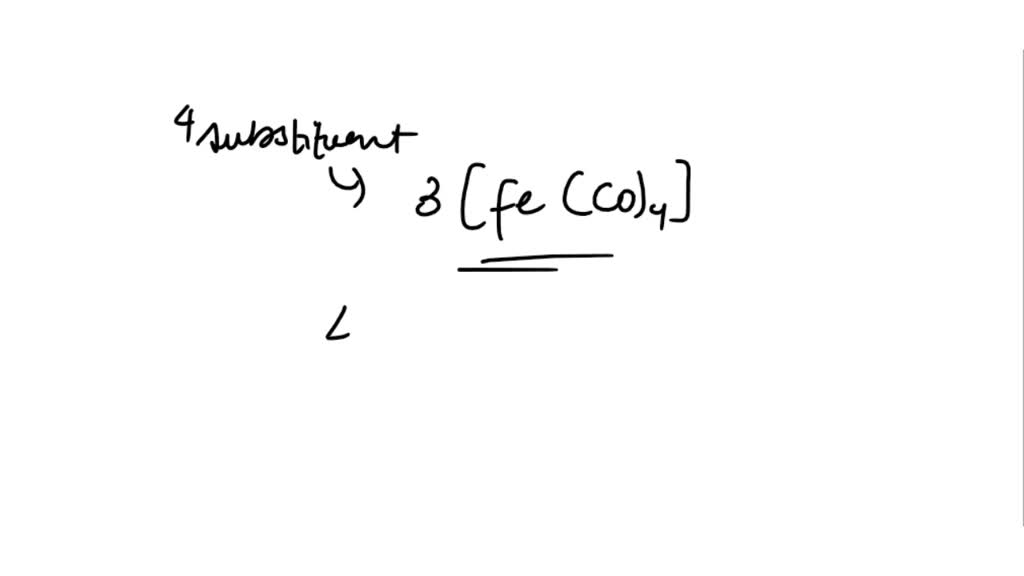 4 substituent
3 [fe (CO)4]
L